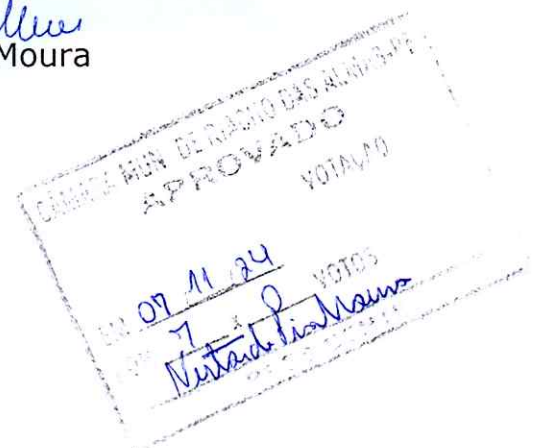 Moura
CÂMARA MUN. DE RIACHO DAS ALMAS-PE
APROVADO
VOTAÇÃO
EM 07 11 24
7 x 0 VOTOS